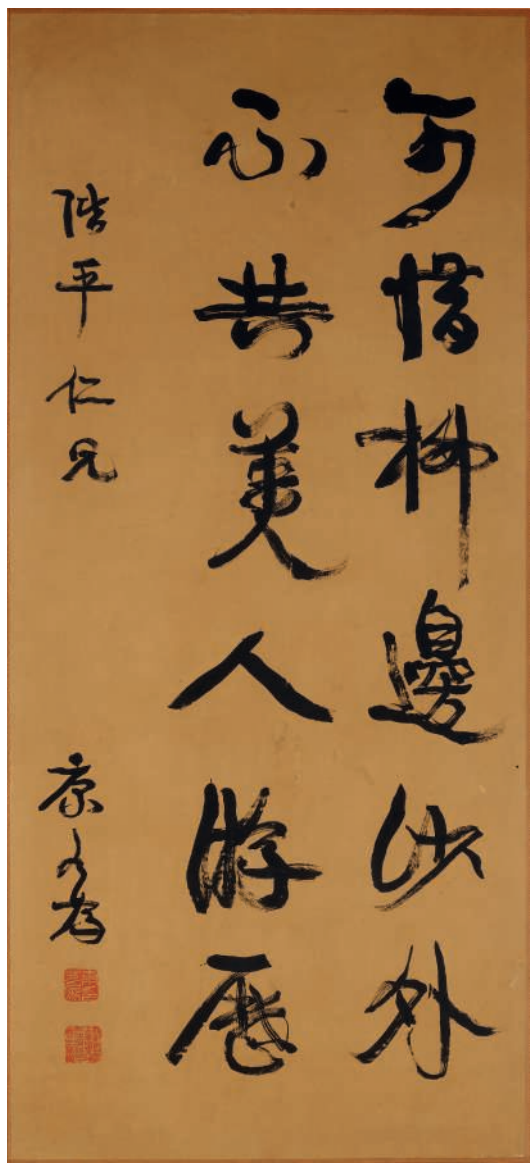 可惜柳邊沙外
不共美人游歷
平仁兄
康有為